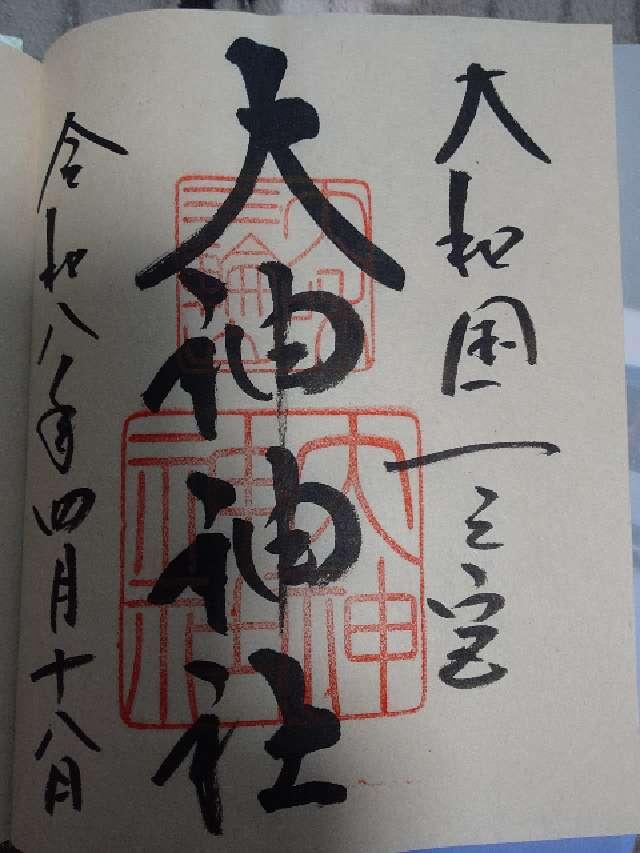 大和国一之宮
大神神社
大神神社
令和八年四月十八日